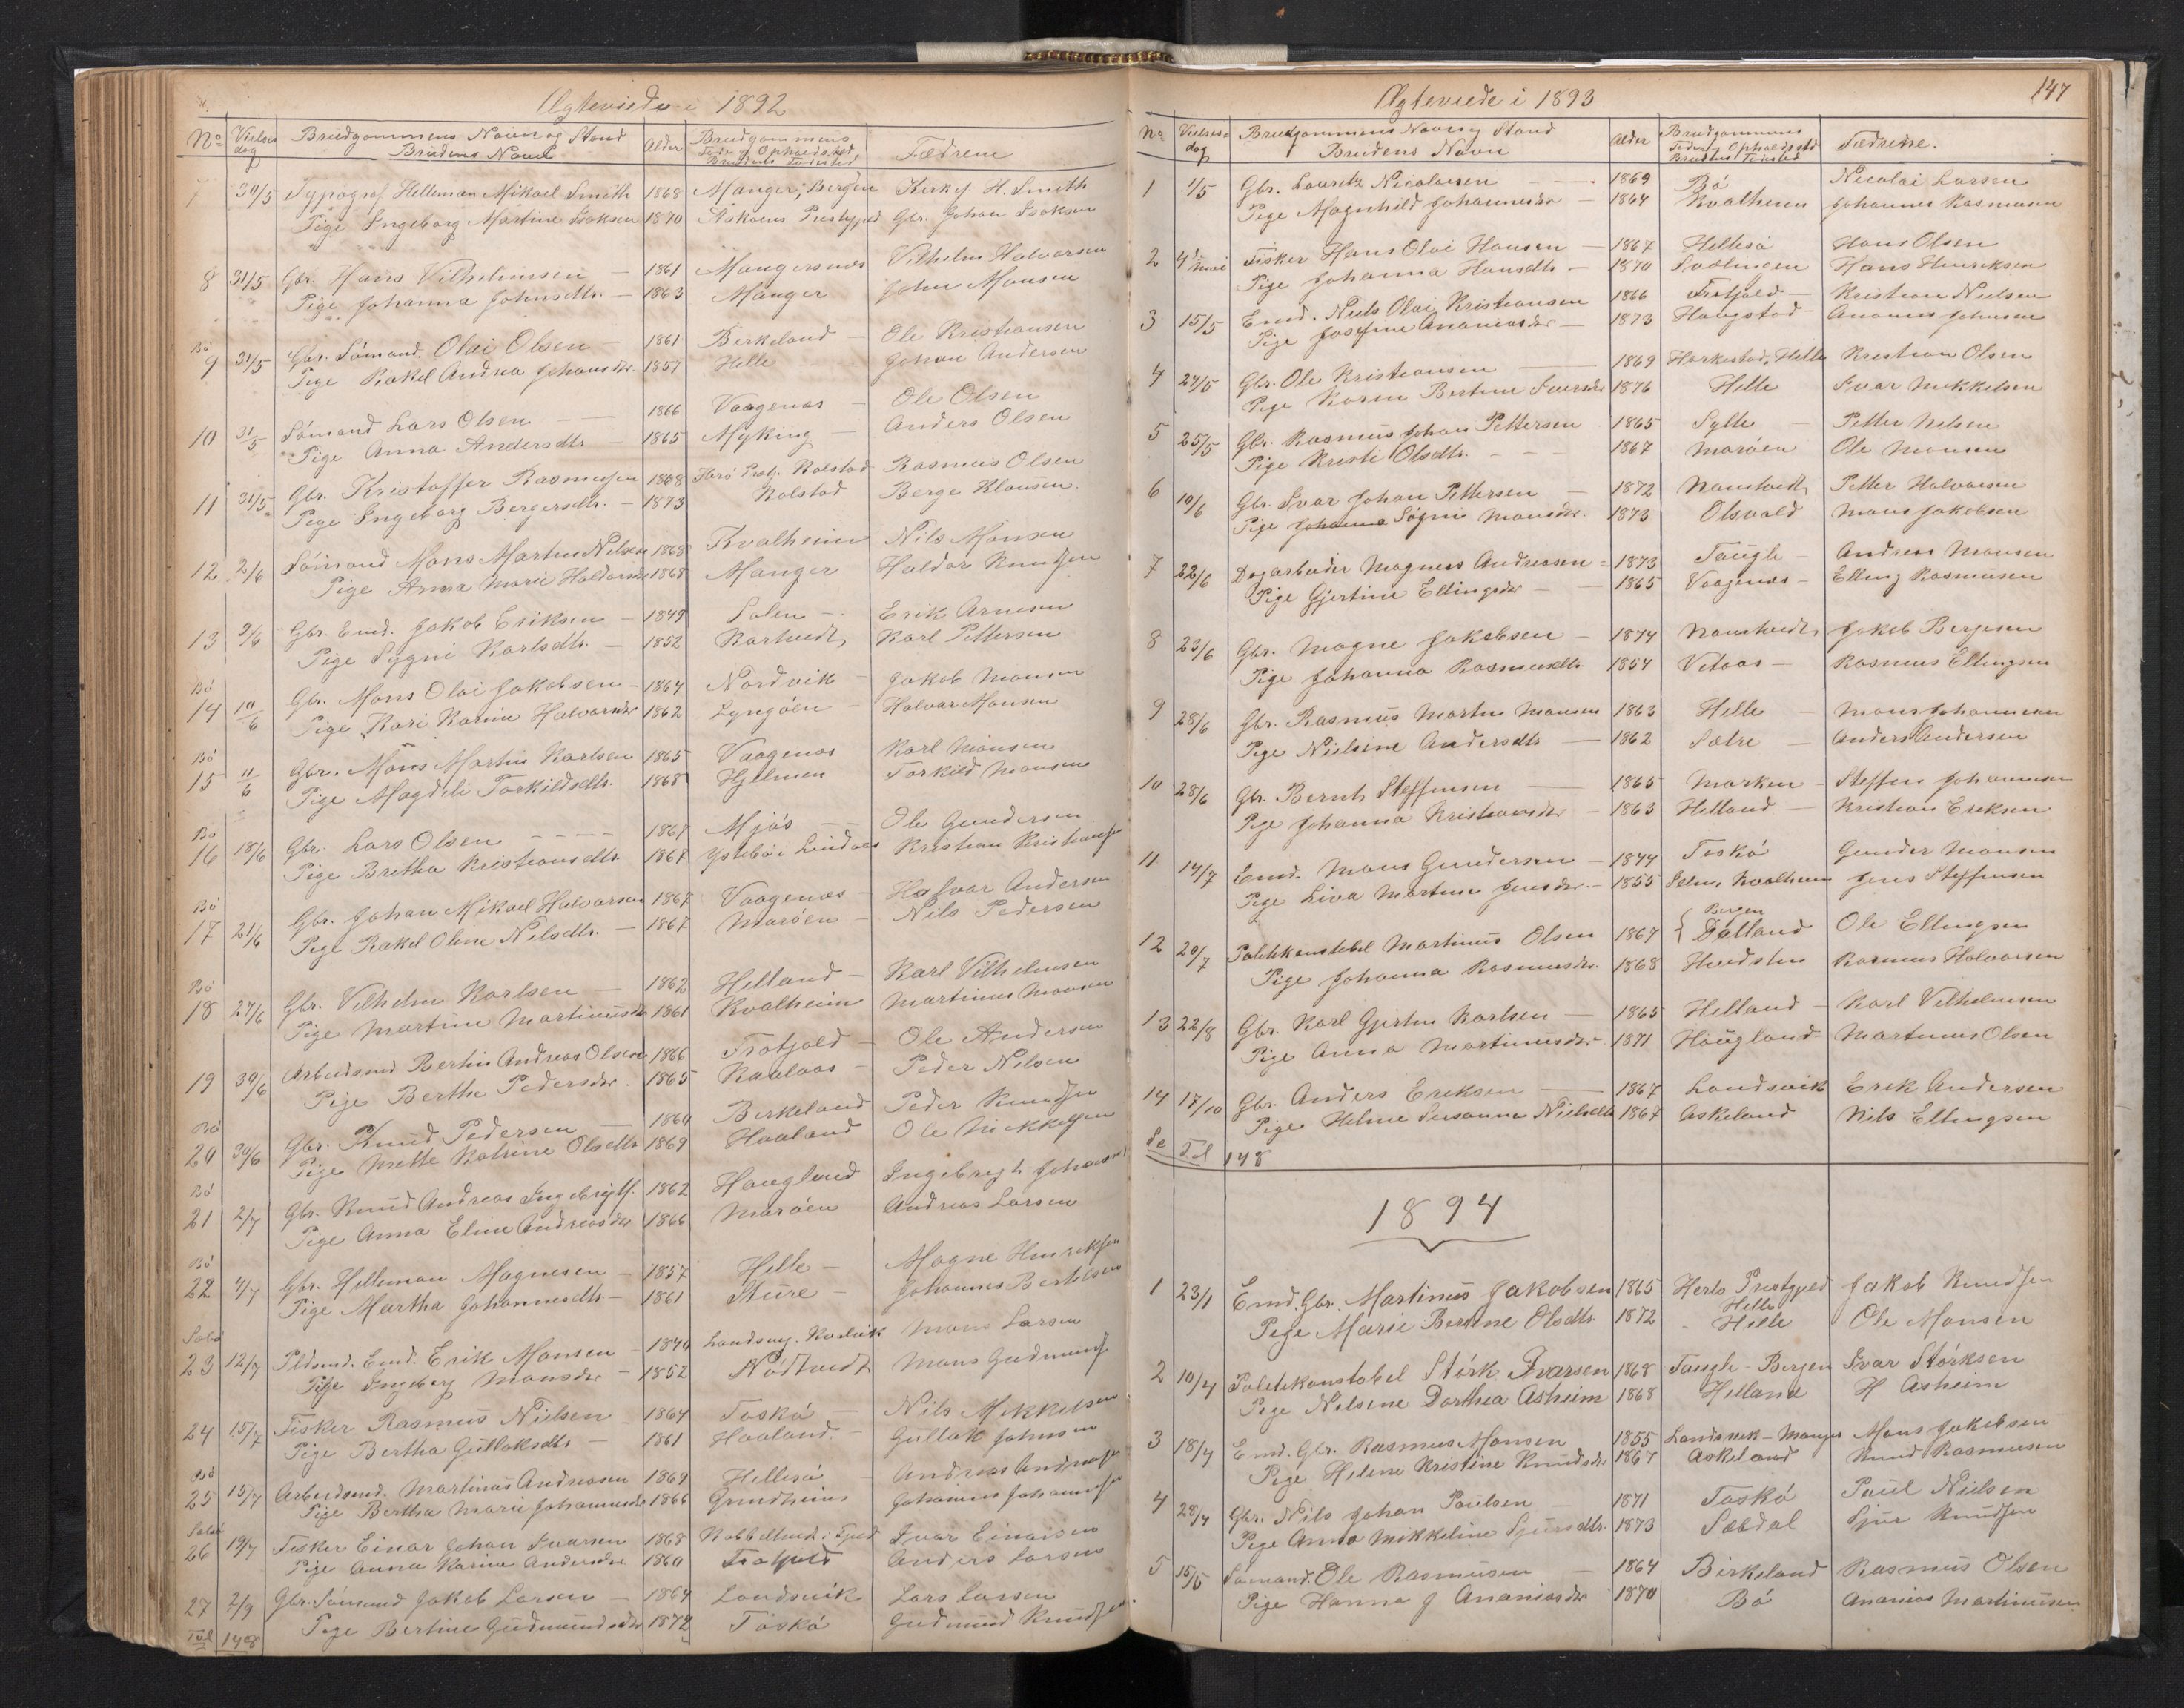 Ægteviede i 1892
No Vielses dag Brudgommens Navn og Stand Brudens Navn Alder Brudgommens Føde og Opholdssted Brudens Fødested Fædrene
7 30/5 Typograf Helleman Mikael Smith 1868 Manger, Bergen H. Smith
Pige Ingeborg Martine Isaksen 1870 Askøens Prestegjed Gbr. Johan Isaksen
8 31/5 Gbr. Hans Vilhelmsen 1861 Mangersnes Vilhelm Halvorsen
Pige Johanna Johnsdtr. 1863 Manger John Monsen
Bø
9 31/5 Gbr. Sømand. Olai Olsen 1861 Birkeland Ole Kristiansen
Pige Rakel Andrea Johansdtr. 1857 Helle Johan Andersen
10 31/5 Sømand Lars Olsen 1866 Vaagenes Ole Olsen
Pige Anna Andersdtr 1865 Myking Anders Olsen
11 31/5 Gbr. Kristoffer Rasmussen 1868 Rolstad Rasmus Olsen
Pige Ingeborg Bergersdtr. 1873 Rolstad Berge Klausen.
12 2/6 Sømand Mons Martin Nilsen 1868 Kvalheim Nils Monsen
Pige Anna Marie Haldorsdtr 1868 Manger Haldor Knutsen
13 9/6 Gbr. Emd. Jakob Eriksen 1849 Solem Erik Arnesen
Pige Sygni Karlsdtr. 1852 Kartvedt Karl Pettersen
Bø
14 10/6 Gbr. Mons Olai Jakobsen 1864 Nordvik Jakob Monsen
Pige Kari Karine Halvorsdtr 1862 Lyngøen Halvor Monsen
Bø
15 11/6 Gbr. Mons Martin Karlsen 1865 Vaagenes Karl Monsen
Pige Magdeli Torkildsdtr. 1868 Hjelmen Torkild Monsen
Bø
16 18/6 Gbr. Lars Olsen 1867 Mjøs Ole Gundersen
Pige Bretha Kristiansdtr. 1867 Ystebø i Lindaas Kristian Kristiansen
Bø
17 21/6 Gbr. Johan Mikael Halvorsen 1867 Vaagenes Halvor Andersen
Pige Rakel Oline Nilsdtr. 1867 Marøen Nils Pedersen
Bø
18 27/6 Gbr. Vilhelm Karlsen 1862 Helland Karl Vilhelmsen
Pige Martine Martinusdtr 1861 Kvalheim Martinus Monsen
19 30/6 Arbeidsmd Bertin Andreas Olsen 1866 Frotjold Ole Andersen
Pige Berthe Pedersdtr. 1865 Kaalaas Peder Nilsen
Bø
20 30/6 Gbr. Knud Pedersen 1860 Birkeland Peder Knudsen
Pige Mette Katrine Olsdtr 1869 Haaland Ole Mikkelsen
Bø
21 2/7 Gbr. Knud Andreas Ingebrigts. 1862 Haugland Ingebrigt Johansen
Pige Anna Eline Andreasdtr 1866 Marøen Andreas Larsen
Bø
22 4/7 Gbr. Helleman Magnesen 1857 Helle Magne Henriksen
Pige Martha Johannesdtr. 1861 Sture Johannes Bertelsen
Sæbø
23 12/7 Pldsmd. Emd. Erik Monsen 1840 Mons Larsen
Pige Ingeborg Monsdtr 1852 Nøttvedt Mons Gudmunds.
24 15/7 Fisker Rasmus Nielsen 1864 Toskø Nils Mikkelsen
Pige Bertha Gullaksdtr 1861 Haaland Gullak Johnsen
Bø
25 15/7 Arbeidsmd. Martinus Andreasen 1869 Hellesø Andreas Andreasen
Pige Bertha Marie Johannesdtr 1866 Grindheim Johannes Johannessen
Sæbø
26 19/7 Fisker Einar Johan Ivarsen 1868 Ivar Einarsen
Pige Anna Karina Andersdtr 1860 Frotjold Anders Larsen
27 2/9 Gbr. Sømand Jakob Larsen 1864 Landsvik Lars Larsen
Pige Bertine Gudmundsdtr 1872 Toskø Gudmund Knudsen.
Tal 148
147
Ægteviede i 1893
No Vielses dag Brudgommens Navn og Stand Brudens Navn Alder Brudgommens Føde og Opholdssted Brudens Fødested Fædrene.
1 1/5 Gbr. Lauritz Nicolaisen 1869 Bø Nicolai Larsen
Pige Magnhild Johannesdtr 1864 Kvalheim Johannes Rasmussen
2 4de Mai Fisker Hans Olai Hansen 1867 Hellesø Hans Olsen
Pige Johanna Hansdtr 1870 Svolingen Hans Henriksen
3 15/5 Emd. Niels Olai Kristiansen 1866 Frotjold Kristian Nielsen
Pige Josefine Ananiasdtr 1873 Haugstad Ananias Johnsen
4 24/5 Gbr. Ole Kristiansen 1869 Harkestad, Helle Kristian Olsen
Pige Karen Bertine Iversdtr 1876 Helle Ivar Mikkelsen
5 25/5 Gbr. Rasmus Johan Pettersen 1865 Sylte Petter Nilsen
Pige Kristi Olsdtr. 1867 Marøen Ole Monsen
6 10/6 Gbr. Ivar Johan Pettersen 1872 Namtvedt Petter Halvorsen
Pige Johanna Søgni Monsdtr. 1873 Olsvold Mons Jakobsen
7 22/6 Dagarbeider Magnus Andreasen 1873 Taugle Andreas Monsen
Pige Gjertine Ellingsdtr 1865 Vaagenes Elling Rasmussen
8 23/6 Gbr. Magne Jakobsen 1874 Namtvedt Jakob Bergesen
Pige Johanna Rasmusdtr. 1854 Vetaas Rasmus Ellingsen
9 28/6 Gbr. Rasmus Martin Monsen 1863 Helle Mons Johannesen
Pige Nielsine Andersdtr 1862 Sætre Anders Andersen
10 28/6 Gbr. Bernt Steffensen 1865 Marken Steffen Johannesen
Pige Johanna Kristiansdtr 1863 Helland Kristian Eriksen
11 14/7 Emd. Mons Gundersen 1844 Toskø Gunder Monsen
Pige Liva Martine Jensdtr. 1855 Selm, Kvalheim Jens Steffensen
12 20/7 Politikonstabel Martinus Olsen 1867 { Bergen Dalland Ole Ellingsen
Pige Johanna Rasmusdtr. 1868 Hundsten Rasmus Halvorsen
13 22/8 Gbr. Karl Gjertin Karlsen 1865 Helland Karl Vilhelmsen
Pige Anna Martinusdtr. 1871 Haugland Martinus Olsen
14 17/10 Gbr. Anders Eriksen 1867 Landsvik Erik Andersen
Pige Helene Susanna Nielsdtr 1867 Askeland Nils Ellingsen
Se Tal 148
1894
1 23/1 Emd. Gbr. Martinus Jakobsen 1865 Herlø Prestgjed Helle Jakob Knudsen
Pige Marie Bertine Olsdtr. 1872 Helle Ole Monsen
2 10/4 Politikonstabel Størk Ivarsen 1868 Taugle - Bergen Ivar Størksen
Pige Nilsine Dorthea Asheim 1868 Helland H Asheim
3 18/4 Emd. Gbr. Rasmus Monsen 1855 Landsvik - Manger Mons Jakobsen
Pige Helene Kristine Knudsdtr 1867 Askeland Knud Rasmussen
4 28/4 Gbr. Nils Johan Paulsen 1871 Toskø Paul Nielsen
Pige Anna Mikkeline Sjursdtr. 1873 Sæbdal Sjur Knudsen
5 15/5 Sømand. Ole Rasmussen 1864 Birkeland Rasmus Olsen
Pige Hanna J Ananiasdtr 1870 Bø Ananias Martinusen